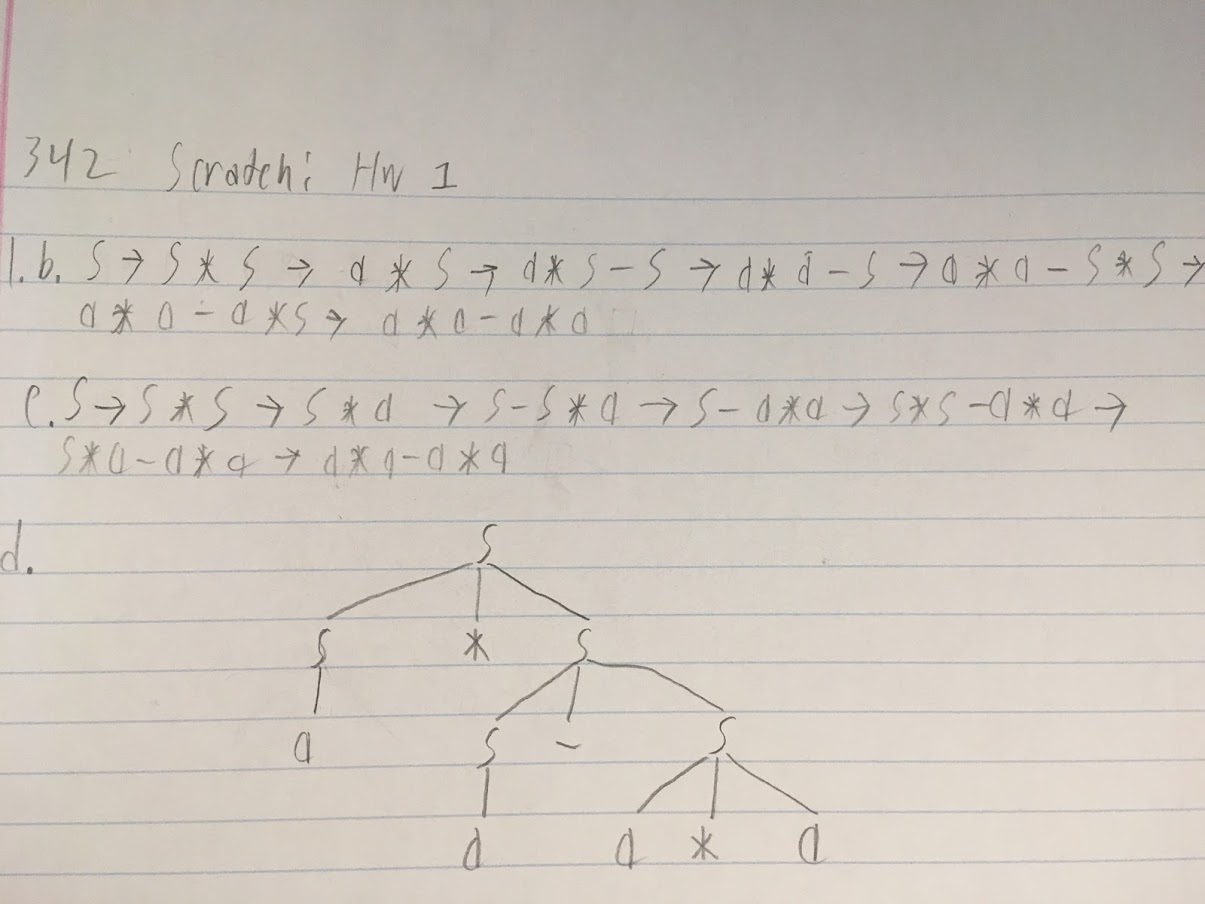 342 Scratch: HW 1
1.b. S → S * S → a * S → a * S - S → a * a - S → a * a - S * S →
a * a - a * S → a * a - a * a
c. S → S * S → S * a → S - S * a → S - a * a → S * S - a * a →
S * a - a * a → a * a - a * a
d.
S
S * S
a S - S
a a * a